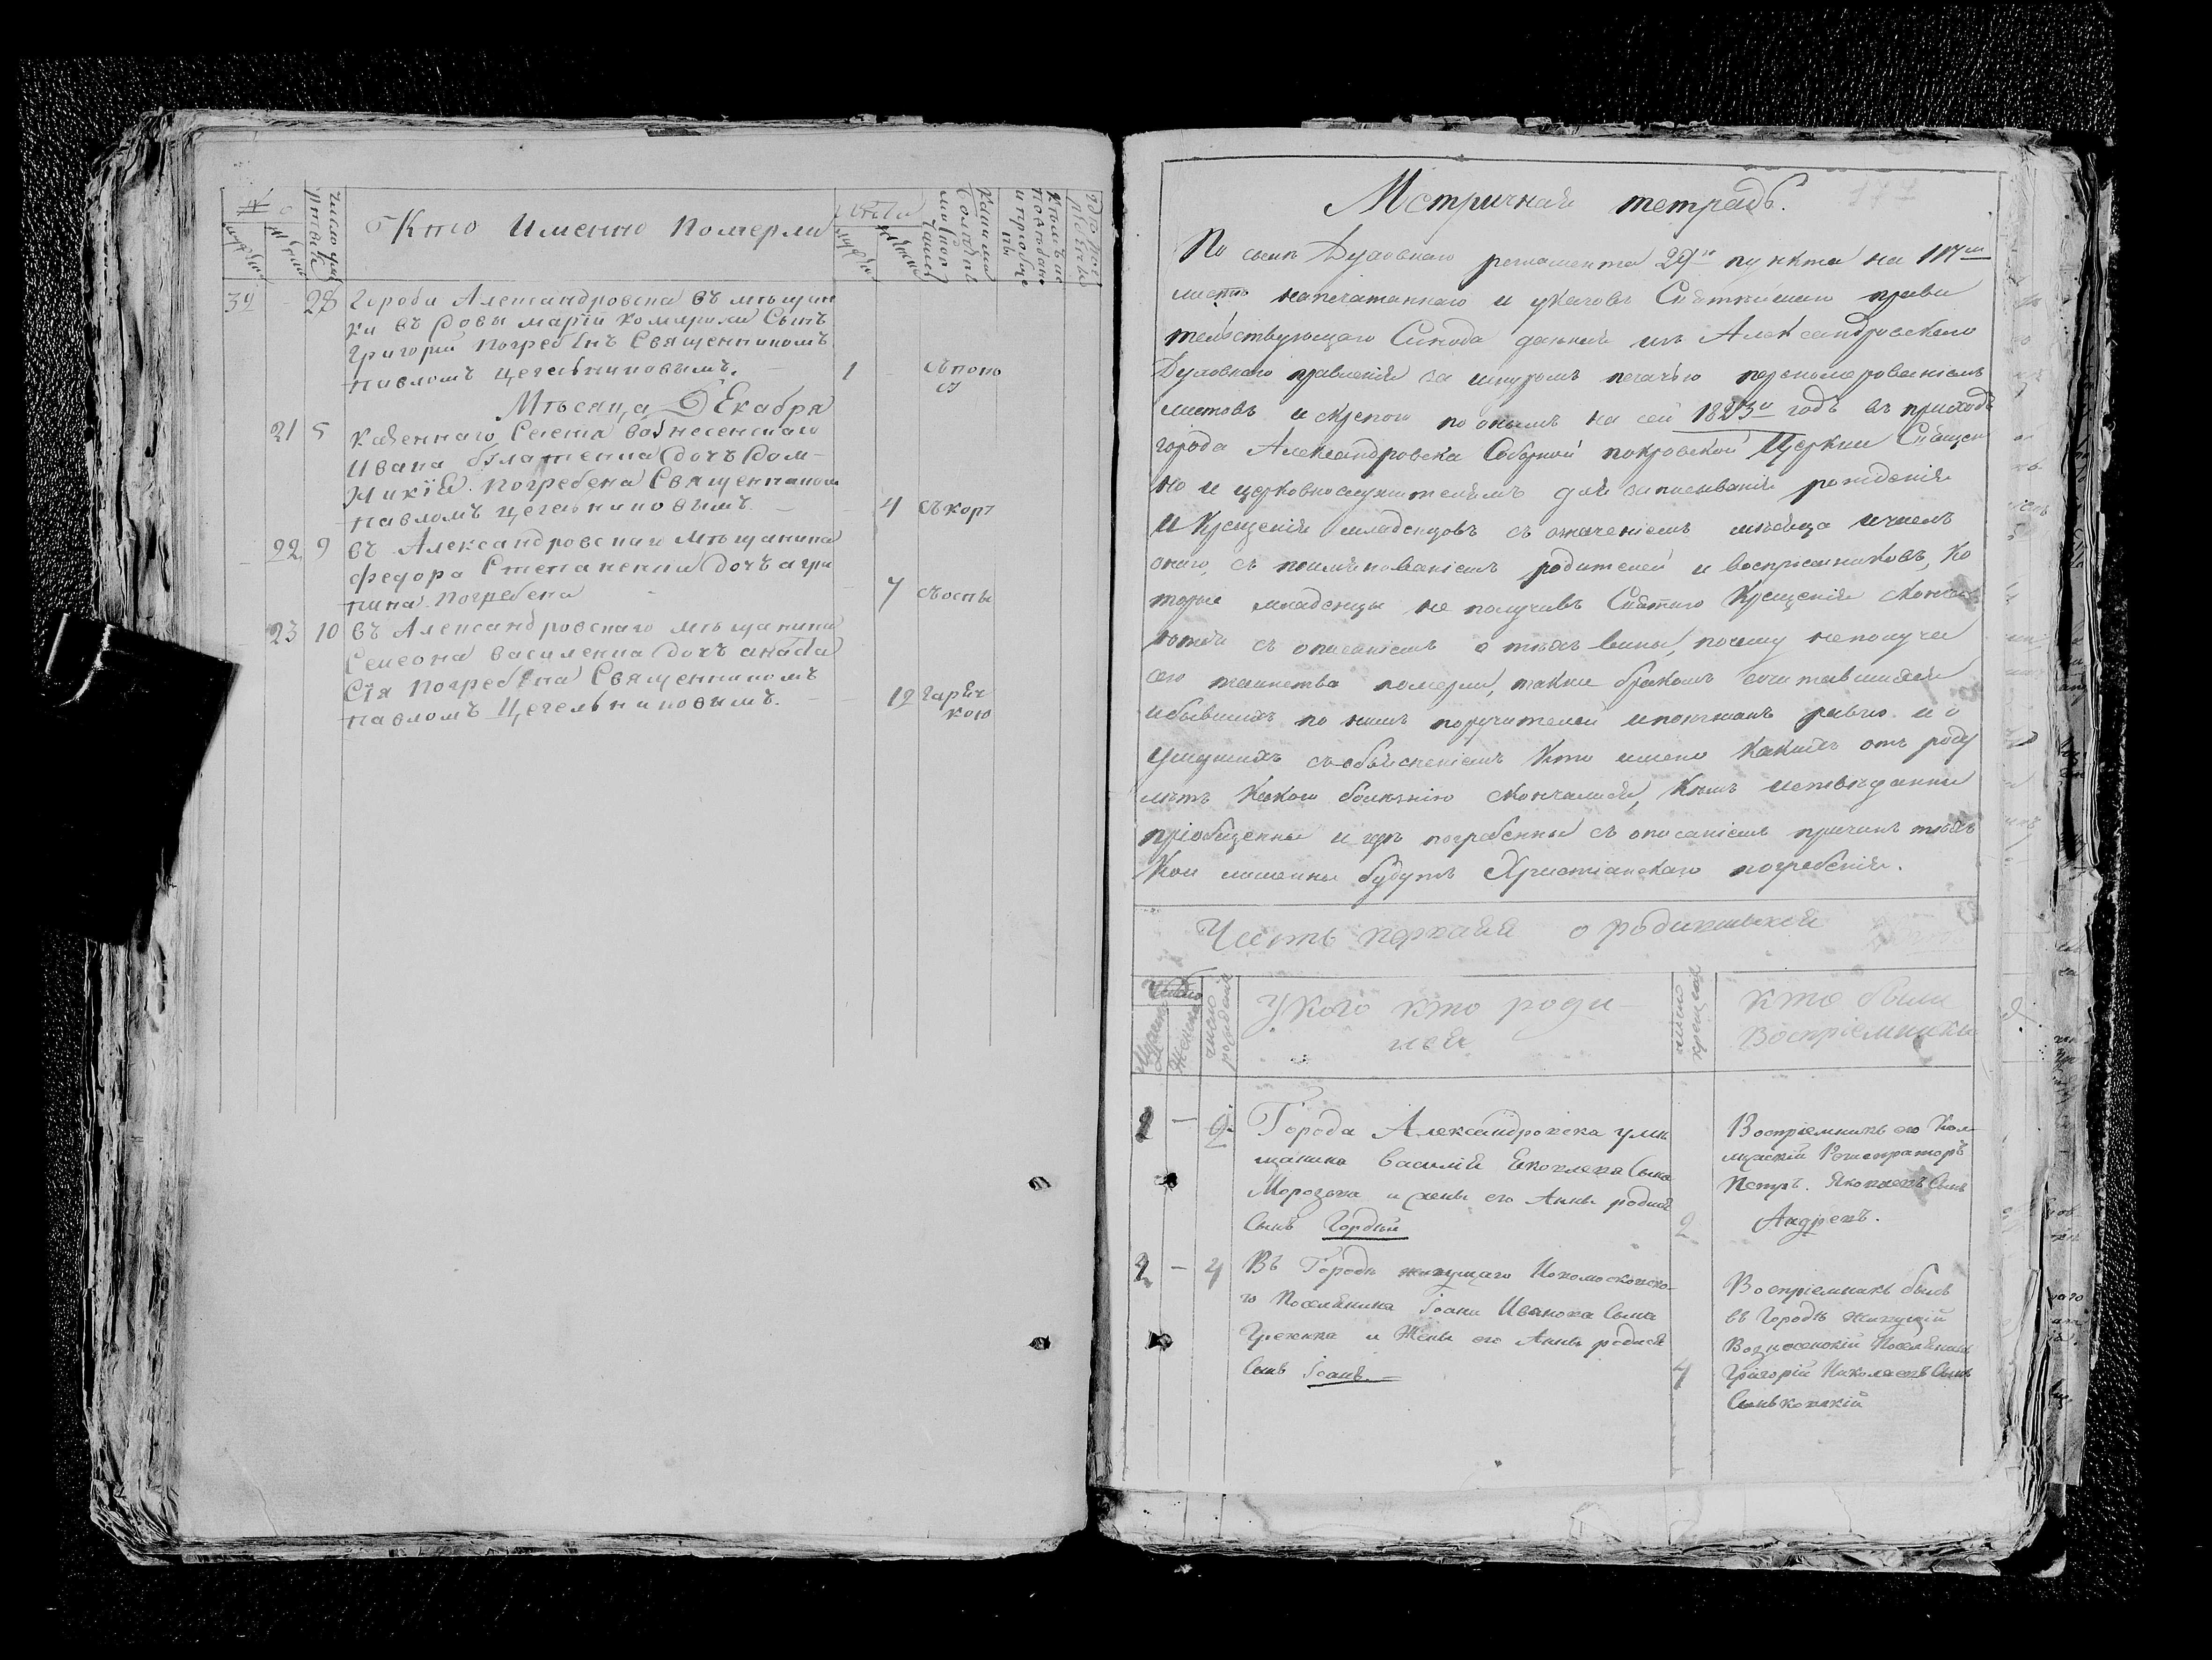 Кто Именно Померли
лѣта
32 - 28 Города Александровска въ мѣщан
ки въдовы маріи комарихи Сынъ
Григорій погребѣнъ Священникомъ
павломъ цегельниковымъ. 1 - съ поно
са
Мѣсяца ДЕкабря
21 5 Казеннаго Селенія вознесенскаго
Ивана дочъ Дом-
никія. погребена Священникомъ
павломъ цегельниковымъ. - 4 съ корі
22 9 въ Александровскаго мѣщанина
федора Степаненка дочъ агри
пина погребена 7 съ оспы
23 10 въ Александровскаго мѣщанина
Семеона василенка дочъ анаста
сія погребѣна Священникомъ
павломъ Цегельниковымъ. - 12 Гаряч
кою
Метричная тетрадь.
По силѣ Духовнаго регламента 29го пункта на 117мъ
листѣ напечатаннаго и указовъ Святѣйшаго прави
тельствующаго Синода данная изъ Александровскаго
Духовнаго правленія за шнуромъ печатью перенумерованіемъ
листовъ и скрепою по онымъ на сей 1823й годъ въ приходъ
города Александровска Соборной покровской Церкви Священ
но и церковнослужителямъ для записыванія рожденія
и Крещенія младенцовъ съ означеніемъ мѣсяца и чиселъ
онаго, съ поимянованіемъ родителей и воспріемниковъ, Ко
торые младенцы не получивъ Святаго Крещенія скончаю
ются съ описаніемъ о тѣхъ вины, почему неполучи
сего таинства померли, такъже бракомъ сочитавшихся
и бывшихъ по нимъ поручителей и поѣжжанъ равно и о
умершихъ съ объясненіемъ Кто имено какихъ отъ роду
лѣтъ какою болѣзнію скончались, Кѣмъ исповѣданны
пріобщенны и гдѣ погребенны съ описаніемъ причинъ тѣхъ
Кои лишенны будутъ Христіанскаго погребенія.
Часть первая о родившихся
Число
Мужеска
Женска
число рожденія
У кого кто роди
лся
число крещенія
кто были
Воспріемники
1 - 2. Города Александровска у мѣ
щанина Василія Яковлева Сына
Морозова и жены его Анны родился
Сынъ Гордѣй 2
Воспріемникъ его Кол-
лежскій Регистраторъ
Петръ. Яковлевъ Сынъ
Андреевъ.
2 - 4 Въ Городѣ живущаго Новомосковска-
го Поселянина Іоана Иванова Сына
и Жены его Анны родился
Сынъ Іоанъ. 4
Воспріемникъ былъ
въ Городѣ живущій
Вознесенскій Поселянинъ
Григорій Николаевъ Сынъ
Синьковскій